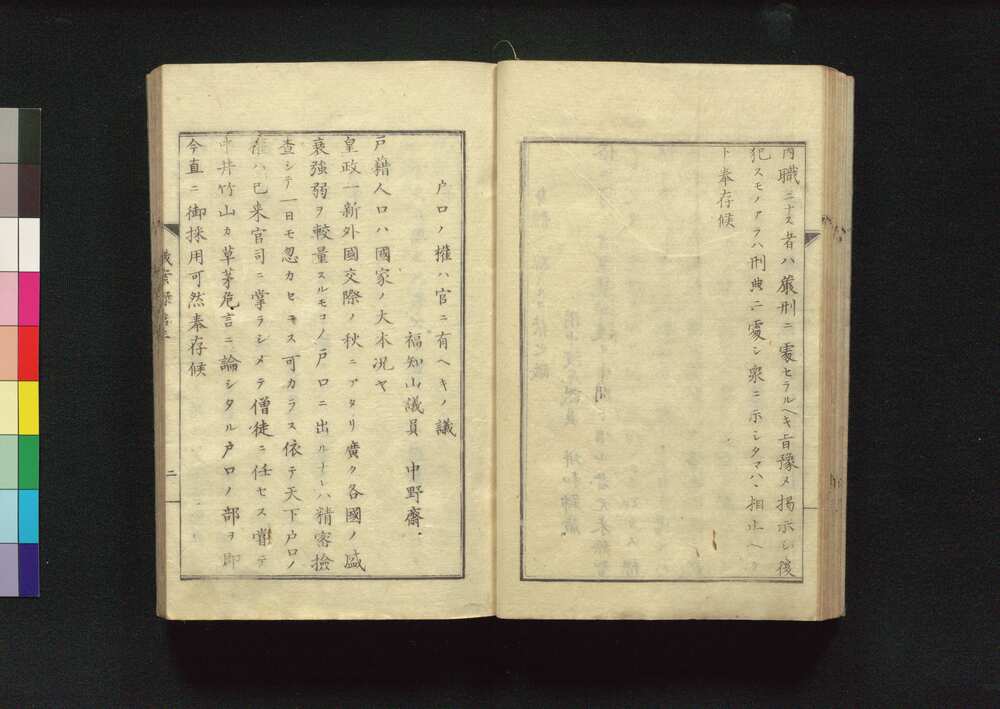 内職ニナス者ハ嚴刑ニ處セラルヘキ旨豫メ掲示シ後
犯スモノアラハ刑典ニ處シ衆ニ示シタマハヽ相止ヘシ
ト奉存候
戸口ノ權ハ官ニ有ヘキノ議
福知山議員 中野齋
戸籍人口ハ國家ノ大本况ヤ
皇政一新外國交際ノ秋ニアタリ廣ク各國ノ盛
衰強弱ヲ較量スルモコノ戸口ニ出ルナレハ精密撿
査シテ一日モ忽カセニス可カラス依テ天下戸口ノ
權ハ已来官司ニ掌ラシメテ僧徒ニ任セス嘗テ
中井竹山カ草茅危言ニ論シタル戸口ノ部ヲ即
今直ニ御採用可然奉存候
二